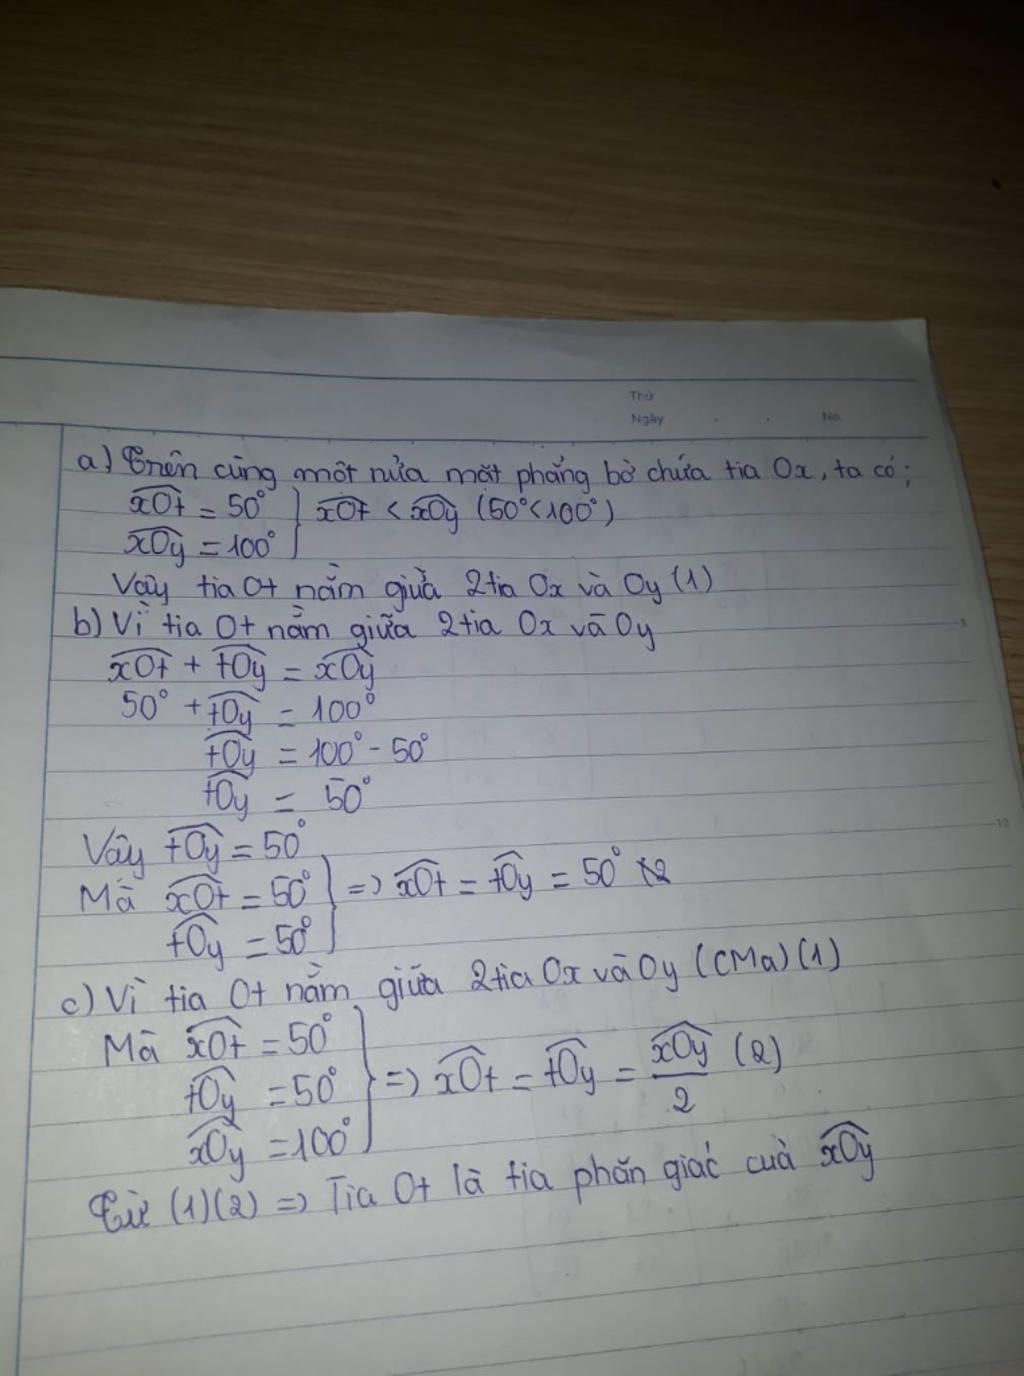 Thứ
Ngày . . No.
a) Trên cùng một nửa mặt phẳng bờ chứa tia Ox, ta có;
xOt = 50° } xOt < xOy (50° < 100°)
xOy = 100°
Vậy tia Ot nằm giữa 2 tia Ox và Oy (1)
b) Vì tia Ot nằm giữa 2 tia Ox và Oy
xOt + tOy = xOy
5
50° + tOy = 100°
tOy = 100° - 50°
tOy = 50°
Vậy tOy = 50°
10
Mà xOt = 50° } => xOt = tOy = 50°
tOy = 50°
c) Vì tia Ot nằm giữa 2 tia Ox và Oy (CMa) (1)
Mà xOt = 50°
tOy = 50° } => xOt = tOy = xOy/2 (2)
xOy = 100°
Từ (1)(2) => Tia Ot là tia phân giác của xOy